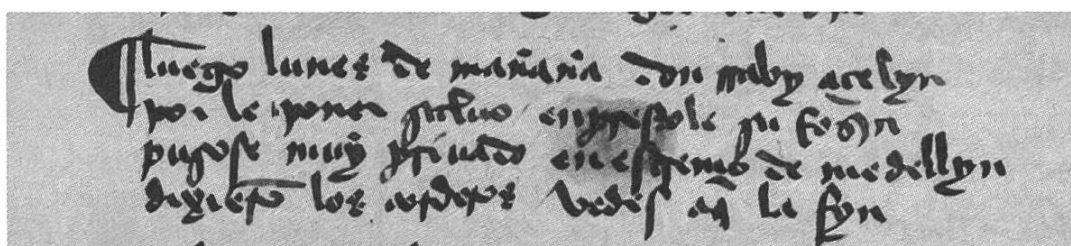 ¶ luego lunes de mañana don rraby açelyn
por le poner saluo enprestole su Roçyn
pusose muy priuado en estremo de medellyn
dixierõ los corderos vedes aq̃ la fyn